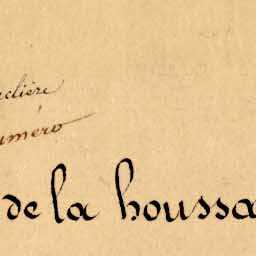 clière
uméro
de la houssa